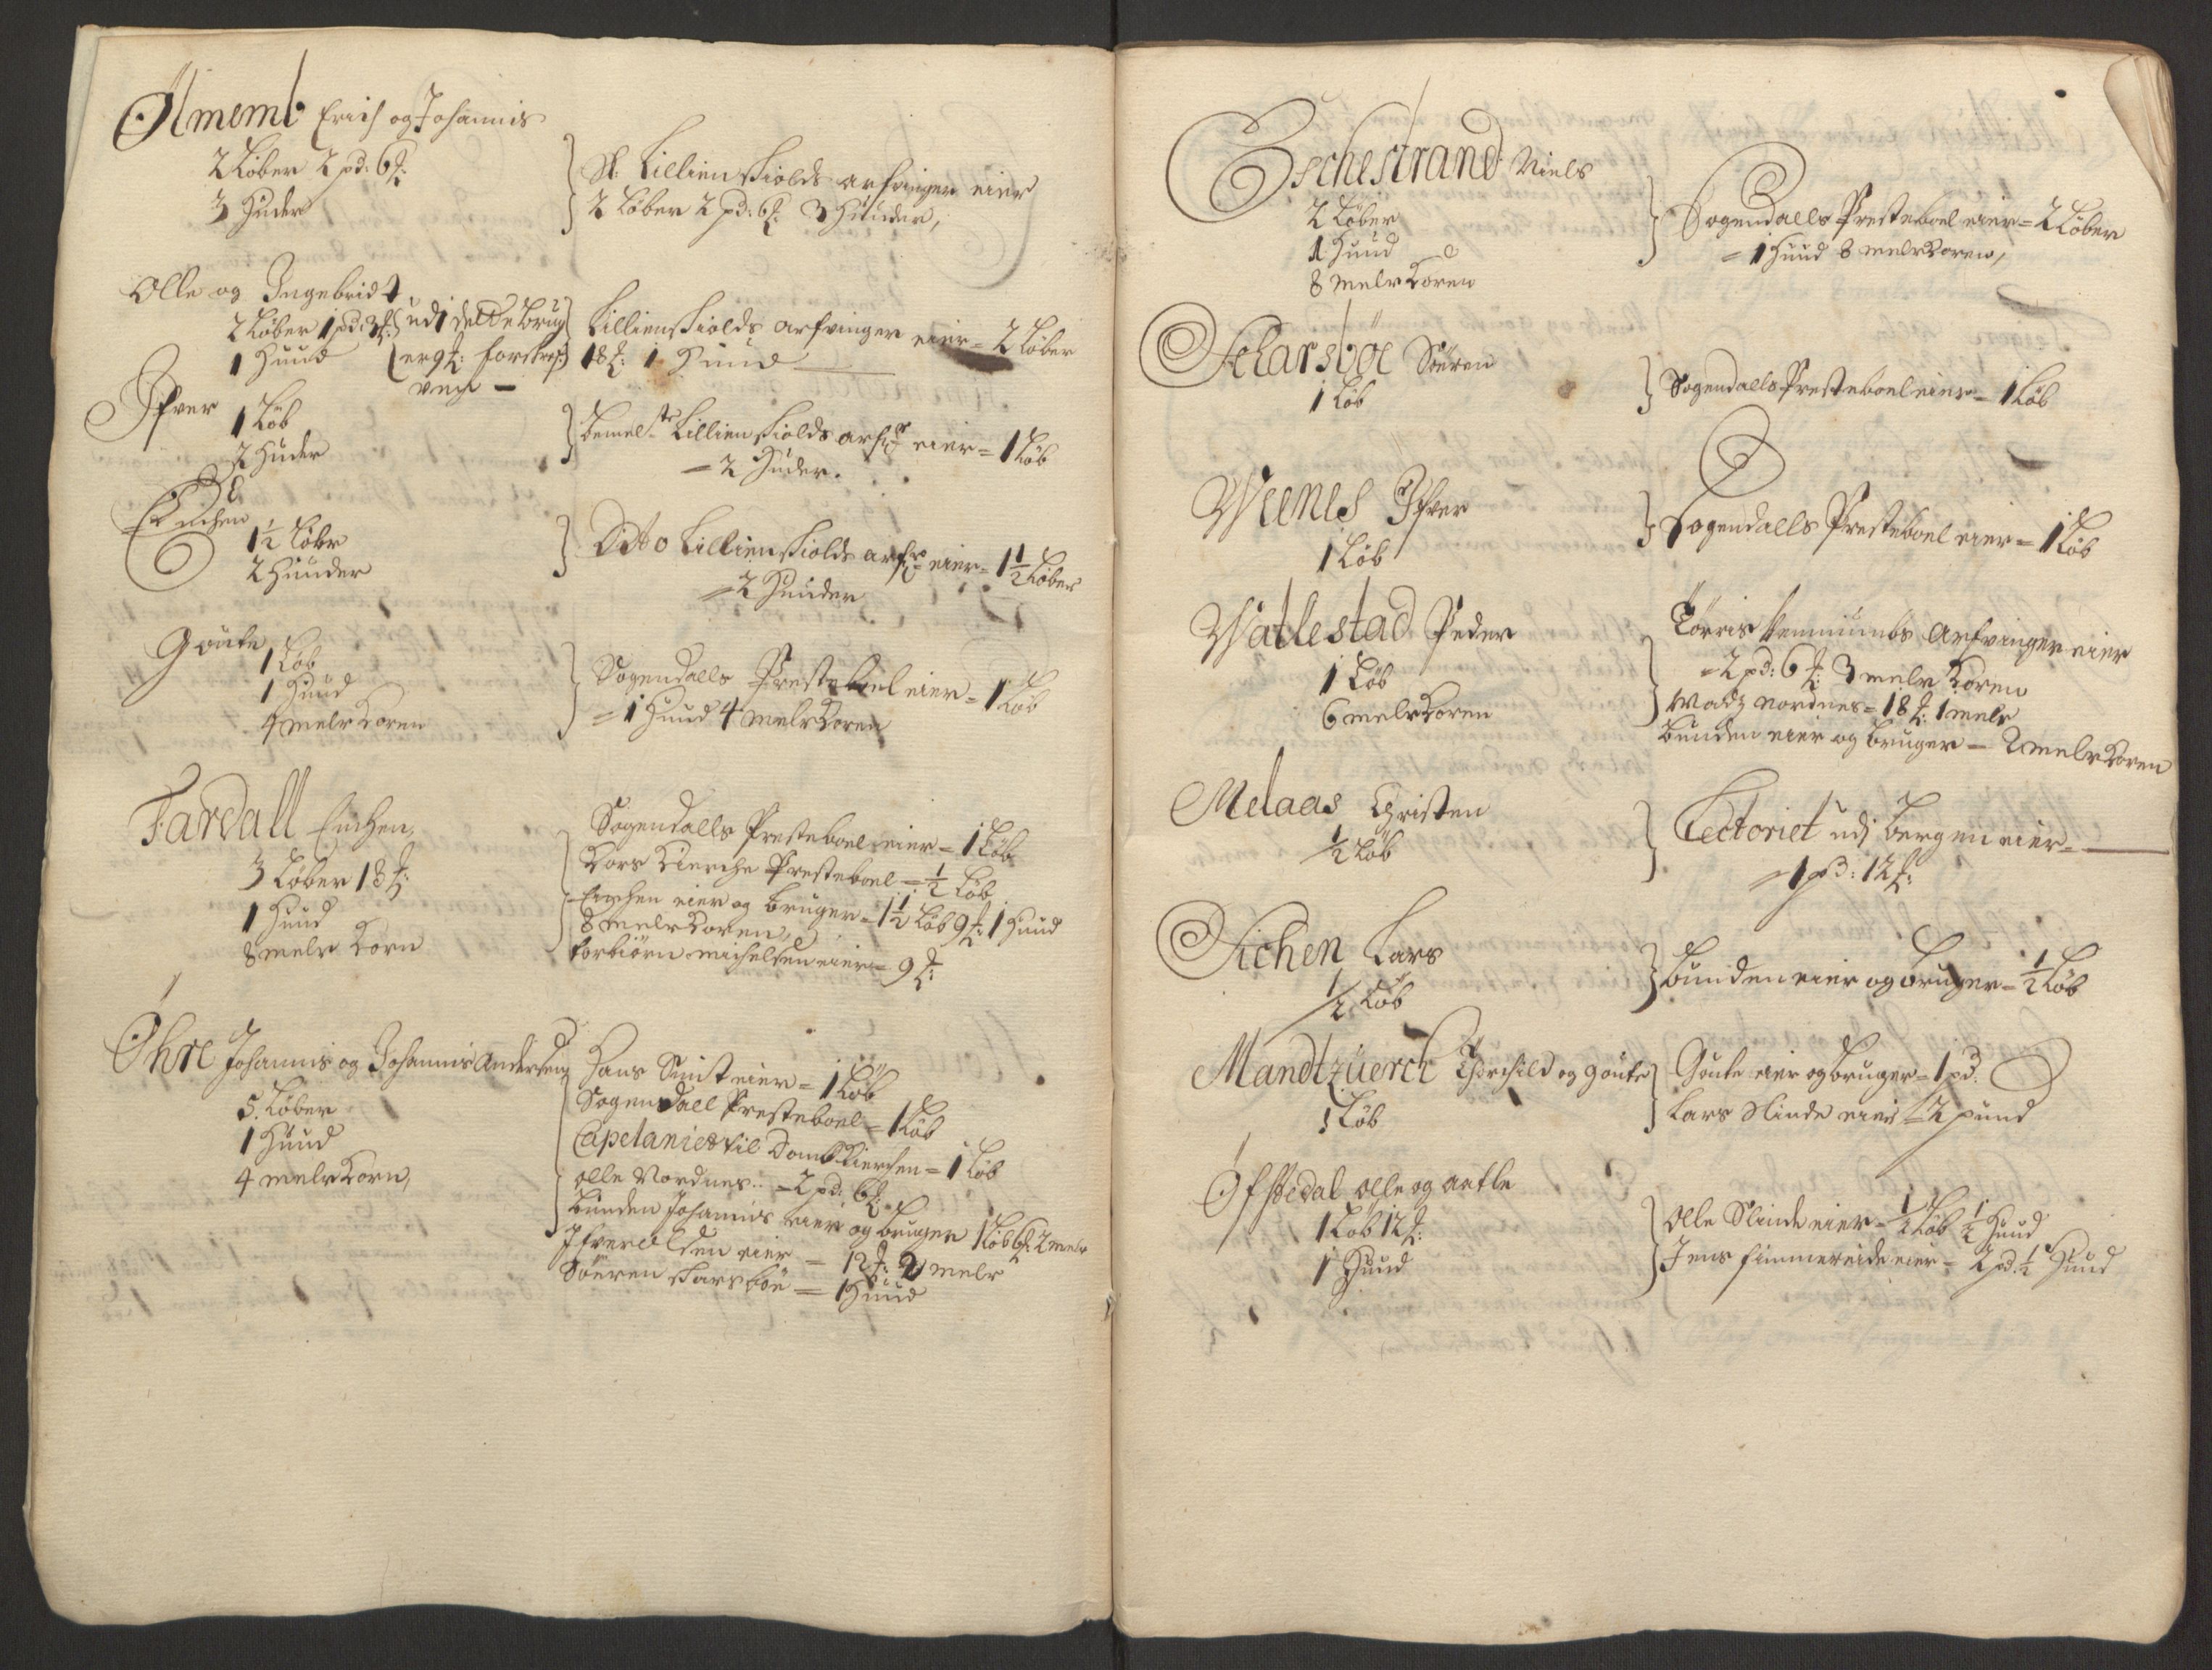 Ølmemb Erich og Johannis
2 Løber 2 pd: 6 ℔:
3 Huder
Sl: Lillienskiolds arfvinger eier
2 Løber 2 pd: 6 ℔ 3 Huuder,
Olle og Ingebridt
2 Løber 1 pd: 3 ℔: udi dette brug
1 Huud er 9 ℔: forskref
ven –
Lillienskiolds arfvinger eier = 2 Løber
18 ℔: 1 Huud
Ifver
1 Løb
2 Huder
bemelte Lillienskiolds arf: eier = 1 Løb
= 2 Huder.
Enchen
1½ Løbr
2 Huuder
Ditto Lillienskiolds arf: eier = 1½ Løber
= 2 Huuder
Goute
1 Løb
1 Huud
4 melr Koren
Sogendalls Presteboel eier = 1 Løb
= 1 Huud 4 melr Koren
Fardall Enchen,
3 Løber 18 ℔:
1 Huud
8 melr Korn
Sogendalls Presteboel eier = 1 Løb
Kors Kierche Presteboel = ½ Løb
Enchen eier og bruger = 1½ Løb 9 ℔: 1 Huud
8 melr Koren,
Torbiørn Michelsen eier = 9 ℔:
Øhre Johannis og Johannis Andersen
5. Løber
1 Huud
4 melr Korn,
Hans Smit eier = 1 Løb
Sogendall Presteboel = 1 Løb
Capelaniet til Domb Kierchen = 1 Løb
Olle Nordnes.. = 2 pd: 6 ℔:
Bunden Johannis eier og bruger 1 Løb 6 ℔ 2 melr
Ifver Olsen eier = 12 ℔: 2 melr
Søeren Skarsbøe = 1 Huud
Eschestrand Niels
2 Løber
1 Huud
8 melr Koren
Sogendalls Presteboel eier = 2 Løber
= 1 Huud 8 melr Koren,
Scharsbøe Søeren
1 Løb
Sogendalls Presteboel eier = 1 Løb
Weenes Ifver
1 Løb
Sogendalls Presteboel eier = 1 Løb
Watlestad Peder
1 Løb
6 melr Koren
Tørris arfvinger eier
= 2 pd: 6 ℔: 3 melr Koren
Madz Nordnes = 18 ℔: 1 melr
bunden eier og bruger = 2 melr Koren
Melaas Christen
½ Løb
Lectoriet udj Bergen eier =
= 1 pd: 12 ℔:
Eichen Lars
½ Løb
bunden eier og bruger = ½ Løb
Mandtzuerck Thorchild og Goute
1 Løb
Goute eier og bruger = 1 pd.
Lars Slinde eier = 2 pund
Ofstedal Olle og Aatle
1 Løb 12 ℔:
1 Huud
Olle Slinde eier = ½ Løb ½ Huud
Jens Fimmereide eier = 2 pd: ½ Huud